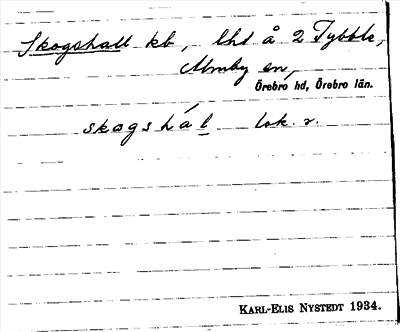 Skogshall kb, lht å 2 Tybble,
Almby sn,
Örebro hd, Örebro län.
skogshál lok. r.
KARL-ELIS NYSTEDT 1934.